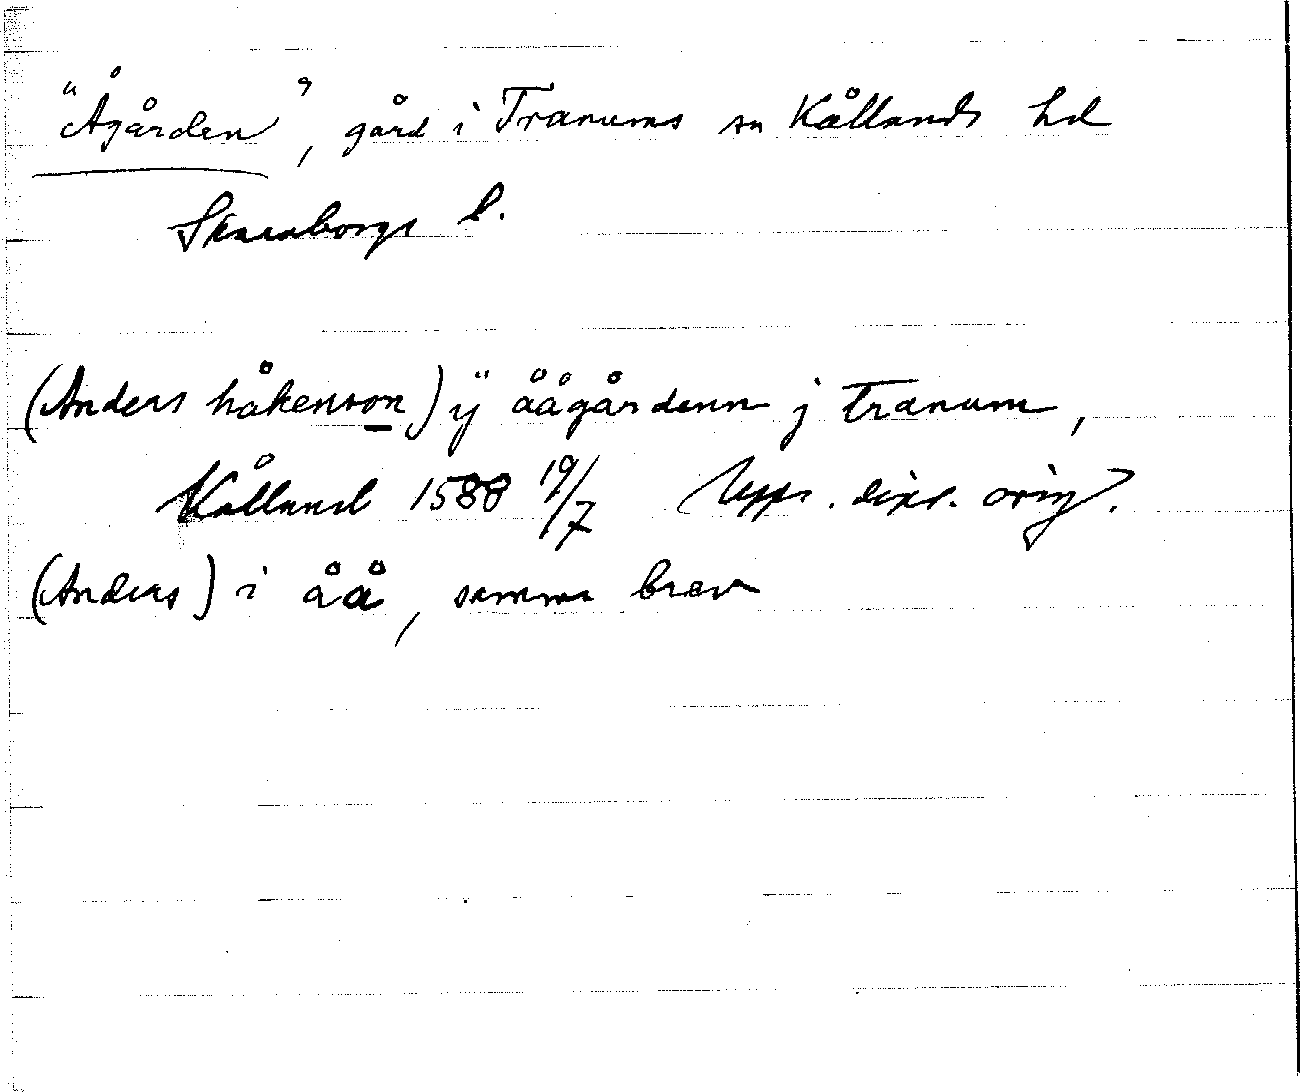 "Ågården", gård i Tranums sn Kållands hd
Skaraborgs l.
(Anders håkenson) ÿ åågårdenn j Tranum,
Kålland 1588 19/7 Upps. dipl. orig.
(Anders) i åå, samma brev